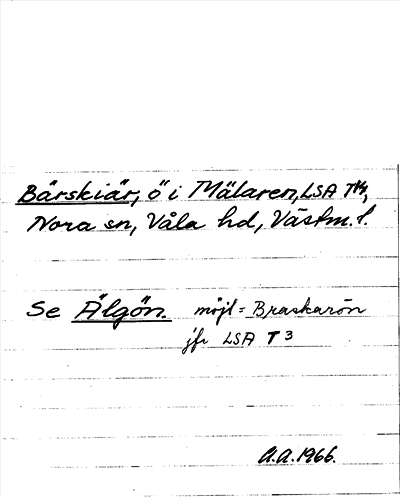 Bärskiär, ö i Mälaren, LSA T14,
Nora sn, Våla hd, Västm. l.
Se Älgön. möjl = Braskarön
jfr LSA T 3
A.A. 1966.